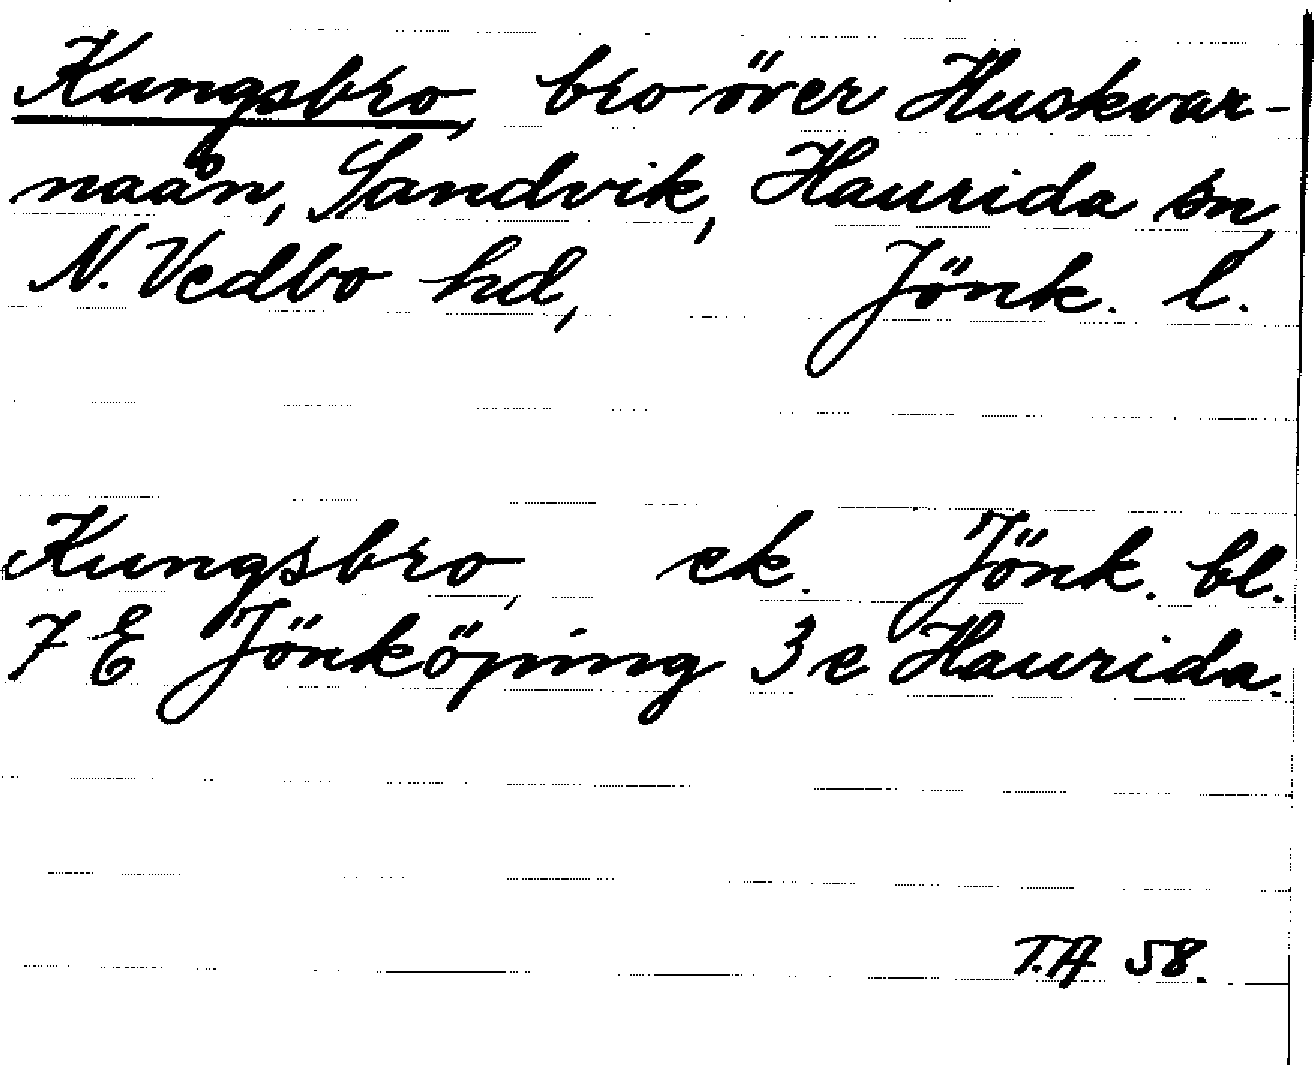 Kungsbro, bro över Huskvar-
naån, Sandvik, Haurida sn,
N. Vedbo hd, Jönk. l.
Kungsbro, ek. Jönk. bl.
7 E Jönköping 3 e Haurida.
T.A 58.